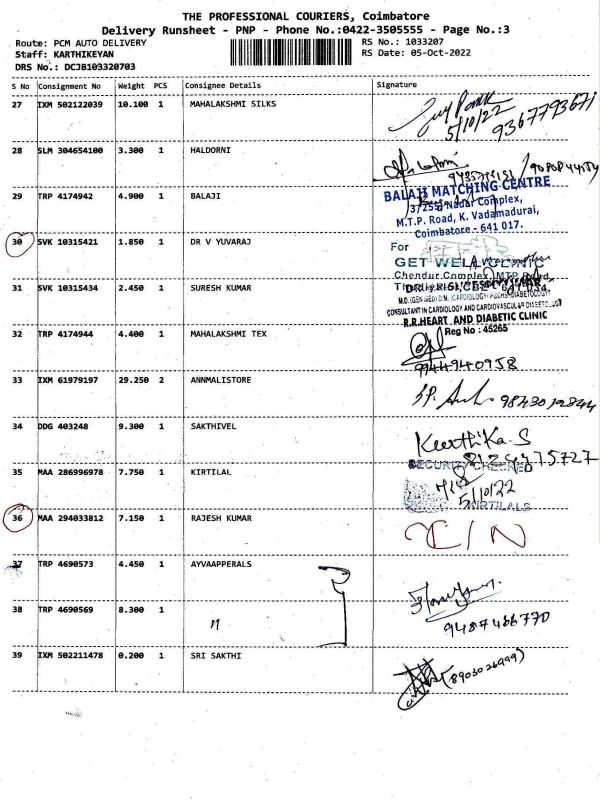 THE PROFESSIONAL COURIERS, Coimbatore
Delivery Runsheet - PNP - Phone No.:0422-3505555 - Page No.:3
Route: PCM AUTO DELIVERY
RS No.: 1033207
Staff: KARTHIKEYAN
RS Date: 05-Oct-2022
DRS No.: DCJB103320703
S No Consignment No Weight PCS Consignee Details Signature
27 IXM 502122039 10.100 1 MAHALAKSHMI SILKS
5/10/22
9367793671
28 SLM 304654100 3.300 1 HALDORNI
29 TRP 4174942 4.900 1 BALAJI
BALAJI MATCHING CENTRE
Nadar Complex,
M.T.P. Road, K. Vadamadurai,
Coimbatore - 641 017.
30 SVK 10315421 1.850 1 DR V YUVARAJ
For
GET WELL CLINIC
Chendur Complex, MTP Road,
31 SVK 10315434 2.450 1 SURESH KUMAR
CONSULTANT IN CARDIOLOGY AND CARDIOVASCULAR DIABETOLOGY
R.R.HEART AND DIABETIC CLINIC
Reg No : 45265
32 TRP 4174944 4.400 1 MAHALAKSHMI TEX
9944940958
33 IXM 61979197 29.250 2 ANNMALISTORE
34 DDG 403248 9.300 1 SAKTHIVEL
Keerthika.S
SECURITY CHECKED
35 MAA 286996978 7.750 1 KIRTILAL
5/10/22
KIRTILALS
36 MAA 294033812 7.150 1 RAJESH KUMAR
37 TRP 4690573 4.450 1 AYVAAPPERALS
38 TRP 4690569 8.300 1
9487466770
39 IXM 502211478 0.200 1 SRI SAKTHI
(8903026999)